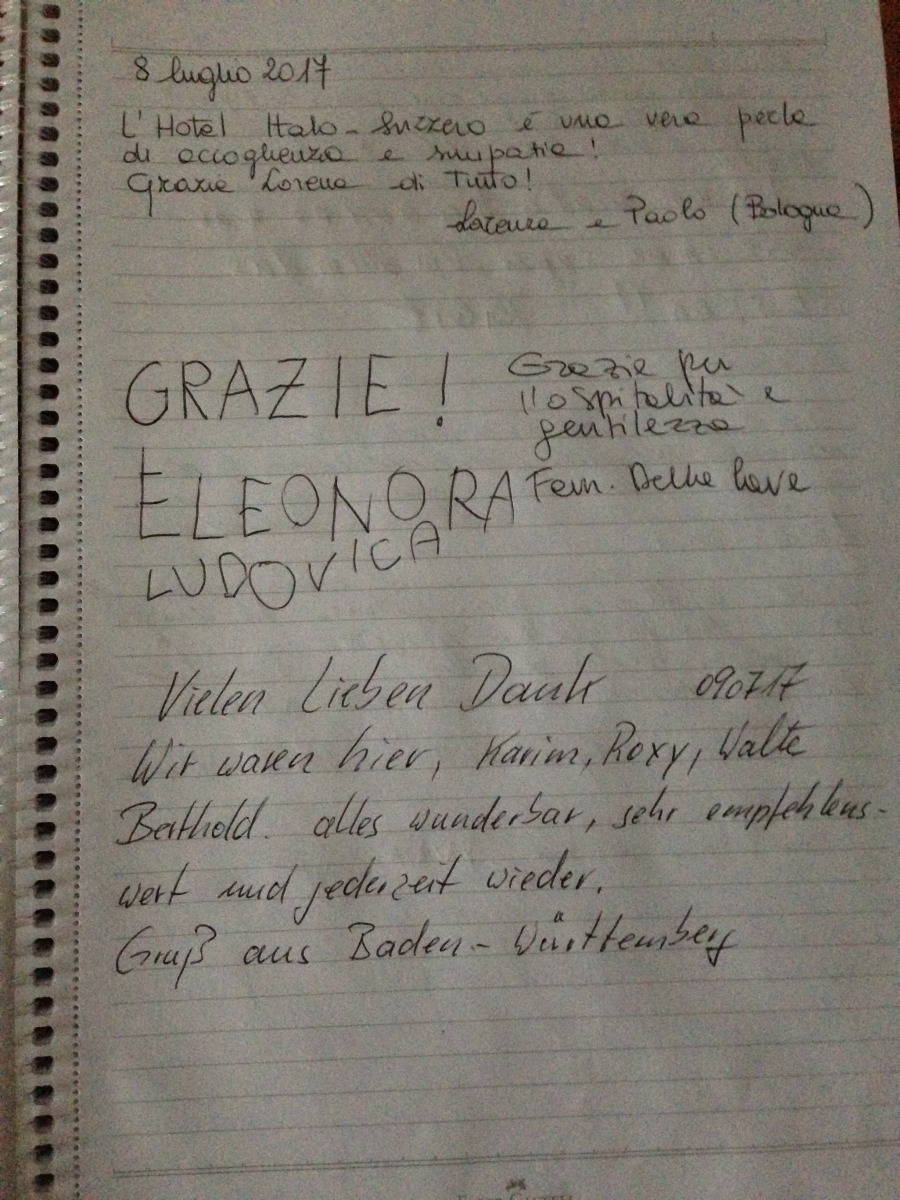 8 luglio 2017
L'Hotel Italo-Svizzero è una vera perla
di accoglienza e simpatia!
Grazie Lorena di Tutto!
Lorenza e Paolo (Bologna)
GRAZIE!
Grazie per
l'ospitalità e
gentilezza
ELEONORA
Fam. Delle
LUDOVICA
Vielen Lieben Dank 090717
Wir waren hier, Karim, Roxy, Walte
Berthold. alles wunderbar, sehr empfehlens-
wert und jederzeit wieder.
Gruß aus Baden-Württemberg